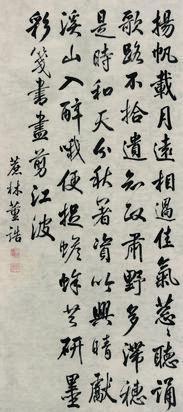 揚帆載月遠相過佳氣葱々聽誦
歌路不拾遺知政肅野多滯穗
是時和天分秋暑資吟興晴獻
溪山入醉哦便捉蟾蜍共研墨
彩箋書盡剪江波
蔗林董誥